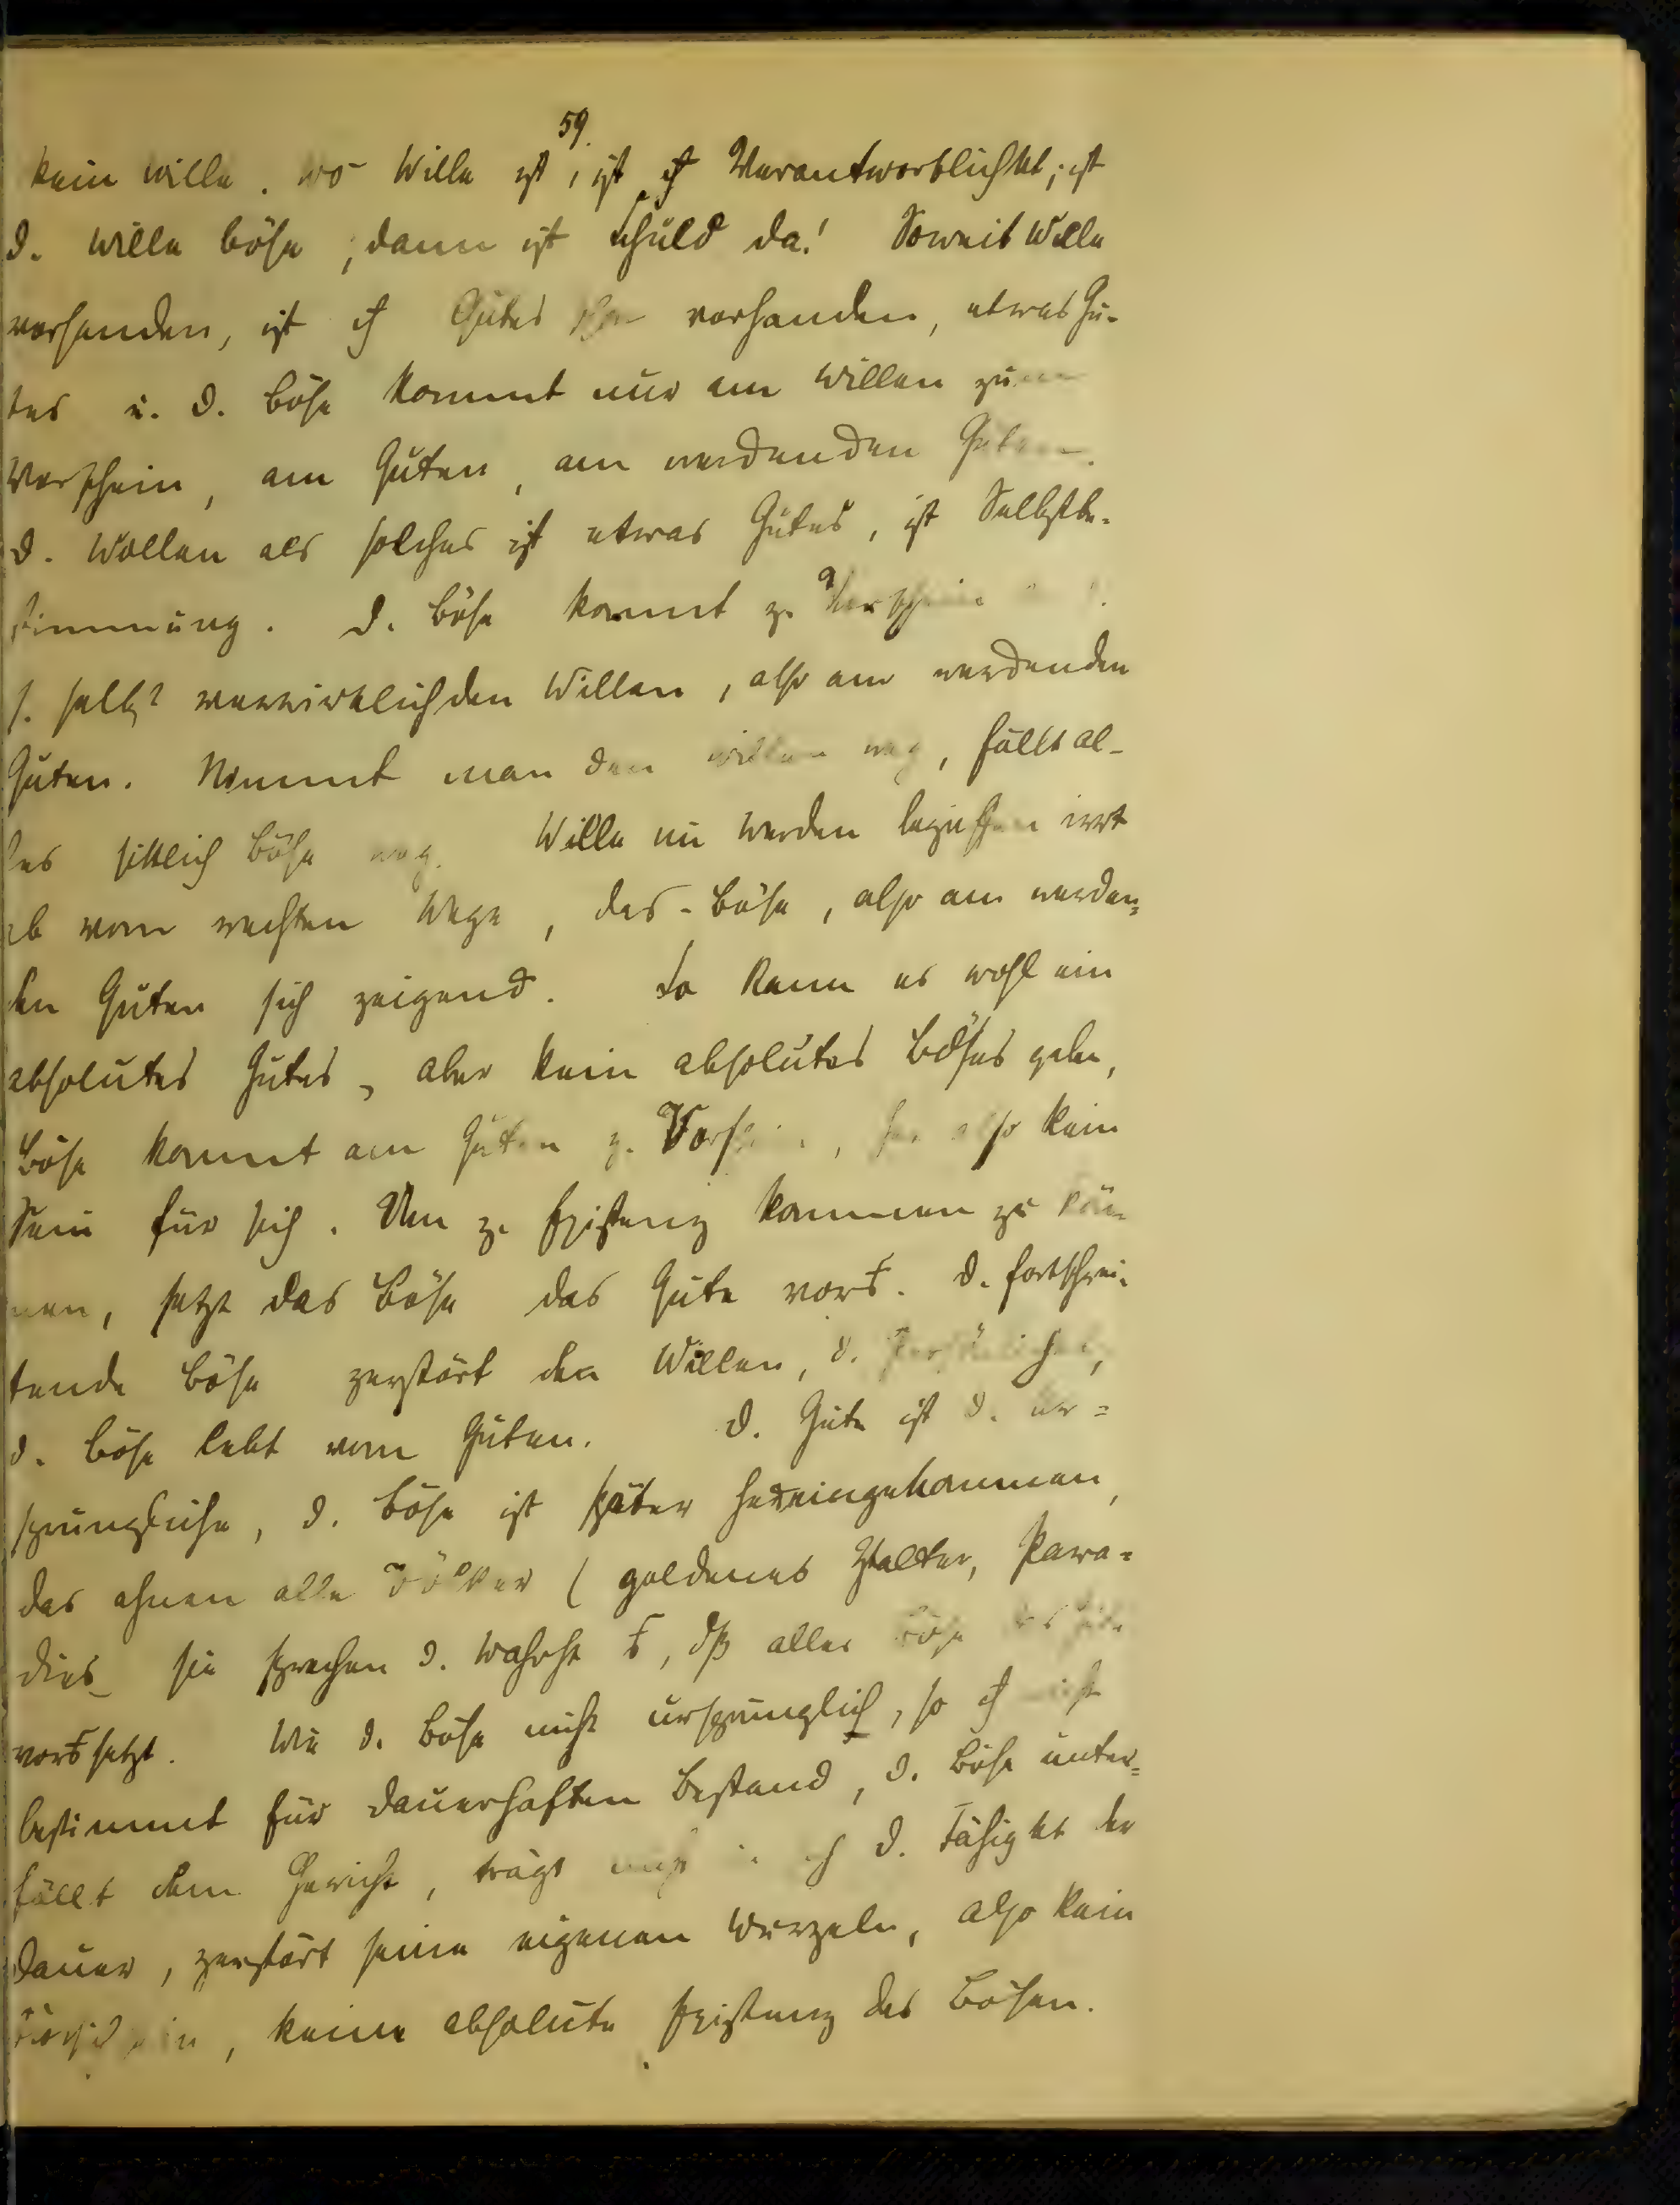 59.
kein Wille. Wo Wille ist, ist auch Verantwortlichkt; ist
d. Wille böse, dann ist Schuld da! Soweit Wille
vorhanden, ist auch Gutes vorhanden, etwas Gu-
tes u. d. Böse kommt nur am Willen zum
Vorschein, am Guten, am werdenden Guten.
D. Wollen als solches ist etwas Gutes, ist Selbstbe-
stimmung. D. Böse kommt z. Vorschein
s. selbst verwirklichden Willen, also am werdenden
Guten. Nimmt man den Willen weg, fällt al-
les sittlich Böse weg. Wille im Werden begriffen irrt
ab vom rechten Wege, das - Böse, also am werden-
den Guten sich zeigend. So kann es wohl ein
absolutes Gutes, aber kein absolutes Böses geben,
Böse kommt am Guten z. Vorschein, also kein
Sein für sich. Um z. Existenz kommen zu kön-
nen, setzt das Böse das Gute vors. D. fortschrei-
tende Böse zerstört den Willen, d. Persönlichkeit,
d. Böse lebt vom Guten. D. Gute ist d. Ur-
sprüngliche, d. Böse ist später hereingekommen,
das ahnen alle Völker (goldenes Ztalter, Para-
dies_ sie sprechen d. Wahrht s, dß alles Böse das Gute
vorssetzt. Wie d. Böse nicht ursprünglich, so auch nicht
bestimmt für dauerhaften Bestand, d. Böse unter-
fällt dem Gericht, trägt nicht in sich d. Fähigkt der
Dauer, zerstört seine eigenen Wurzeln, also kein
, keine absolute Existenz des Bösen.